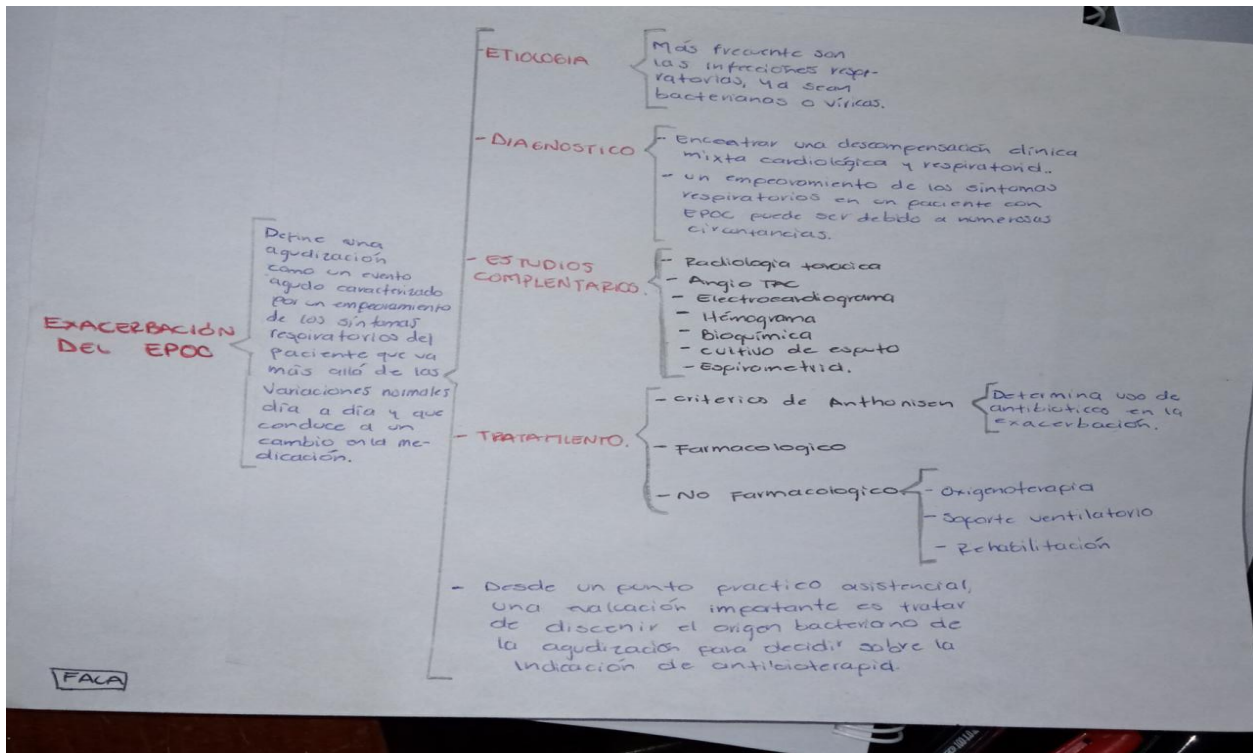 EXACERBACIÓN
DEL EPOC
Define una
agudización
como un evento
agudo caracterizado
por un empeoramiento
de los síntomas
respiratorios del
paciente que va
más allá de las
Variaciones normales
día a día y que
conduce a un
cambio en la me-
dicación.
- ETIOLOGIA
Más frecuente son
las infecciones respi-
ratorias, ya sean
bacterianas o víricas.
- DIAGNOSTICO
- Encontrar una descompensación clínica
mixta cardiológica y respiratoria..
- un empeoramiento de los sintomas
respiratorios en un paciente con
EPOC puede ser debido a numerosas
circuntancias.
- ESTUDIOS
COMPLENTARICO.
- Radiologia toracica
- Angio TAC
- Electrocardiograma
- Hémograma
- Bioquímica
- cultivo de esputo
- Espirometria.
- TRATAMIENTO.
- criterios de Anthonisen
Determina uso de
antibioticos en la
exacerbación.
- Farmacologico
- No Farmacologico
- Oxigenoterapia
- Soporte ventilatorio
- Rehabilitación
- Desde un punto practico asistencial,
una evalcación importante es tratar
de discenir el origen bacteriano de
la agudización para decidir sobre la
Indicación de antibioterapia.
FALA